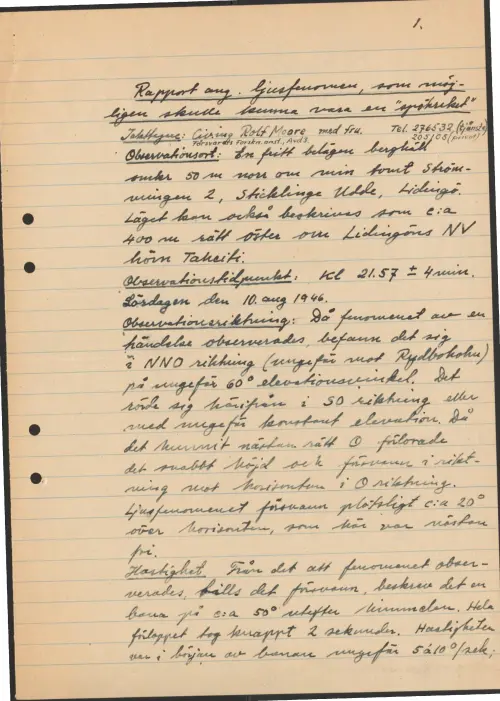 1.
Rapport ang. ljusfenomen, som möj-
ligen skulle kunna vara en "spökraket"
Iakttagare: Civing Rolf Moore med fru. Tel. 276532 (tjänste)
Försvarets Forskn.anst., Avd 3.
Observationsort: En fritt belägen berghäll
omkr 50 m norr om min tomt Ström-
ningen 2, Sticklinge Udde, Lidingö.
Läget kan också beskrivas som c:a
400 m rätt öster om Lidingöns NV
hörn Taheiti.
Observationstidpunkt: Kl 21.57 ± 4 min.
Lördagen den 10. aug 1946.
Observationsriktning: Då fenomenet av en
händelse observerades, befann det sig
i NNO riktning (ungefär mot Rydboholm)
på ungefär 60° elevationsvinkel. Det
rörde sig härifrån i SO riktning eller
med ungefär konstant elevation. Då
det hunnit nästan rätt O förlorade
det snabbt höjd och försvann i rikt-
ning mot horisonten i O riktning.
Ljusfenomenet försvann plötsligt c:a 20°
över horisonten, som här var nästan
fri.
Hastighet Från det att fenomenet obser-
verades, tills det försvann, beskrev det en
bana på c:a 50° utefter himmelen. Hela
förloppet tog knappt 2 sekunder. Hastigheten
var i början av banan ungefär 5 à 10°/sek;